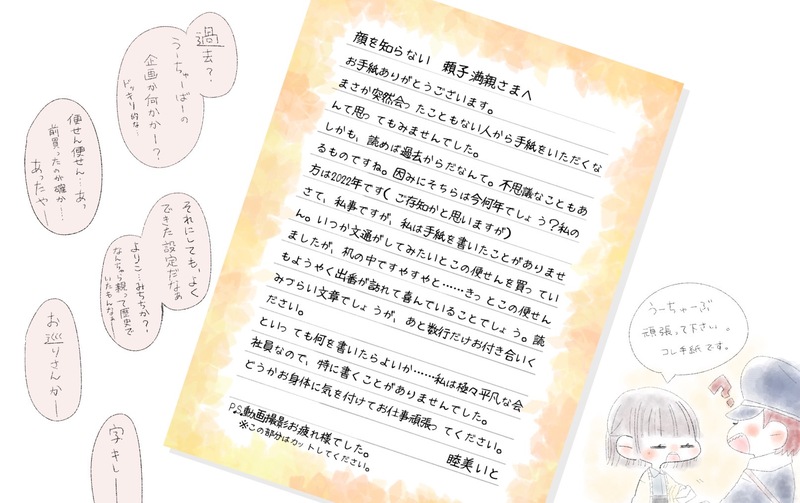 顔を知らない 頼子満親さまへ
お手紙ありがとうございます。
まさか突然会ったこともない人から手紙をいただくな
んて思ってもみませんでした。
しかも、読めば過去からだなんて。不思議なこともあ
るものですね。因みにそちらは今何年でしょう?私の
方は2022年です(ご存知かと思いますが)
さて、私事ですが、私は手紙を書いたことがありませ
ん。いつか文通がしてみたいとこの便せんを買ってい
ましたが、机の中ですやすやと……きっとこの便せん
もようやく出番が訪れて喜んでいることでしょう。読
みづらい文章でしょうが、あと数行だけお付き合いく
ださい。
といっても何を書いたらよいか……私は極々平凡な会
社員なので、特に書くことがありませんでした。
どうかお身体に気を付けてお仕事頑張ってください。
睦美いと
P.S.動画撮影お疲れ様でした。
※この部分はカットしてください。
過去?
うーちゅーばーの
企画か何かかー?
ドッキリ的な
便せん便せん…あっ
前買ったのが確か…
あったやー
それにしても、よく
できた設定だなぁ
よりこ…みちちか?
なんちゃら親って歴史で
いたもんなぁー
お巡りさんかー
字キレー
うーちゅーぶ
頑張って下さい。
コレ手紙です。
?